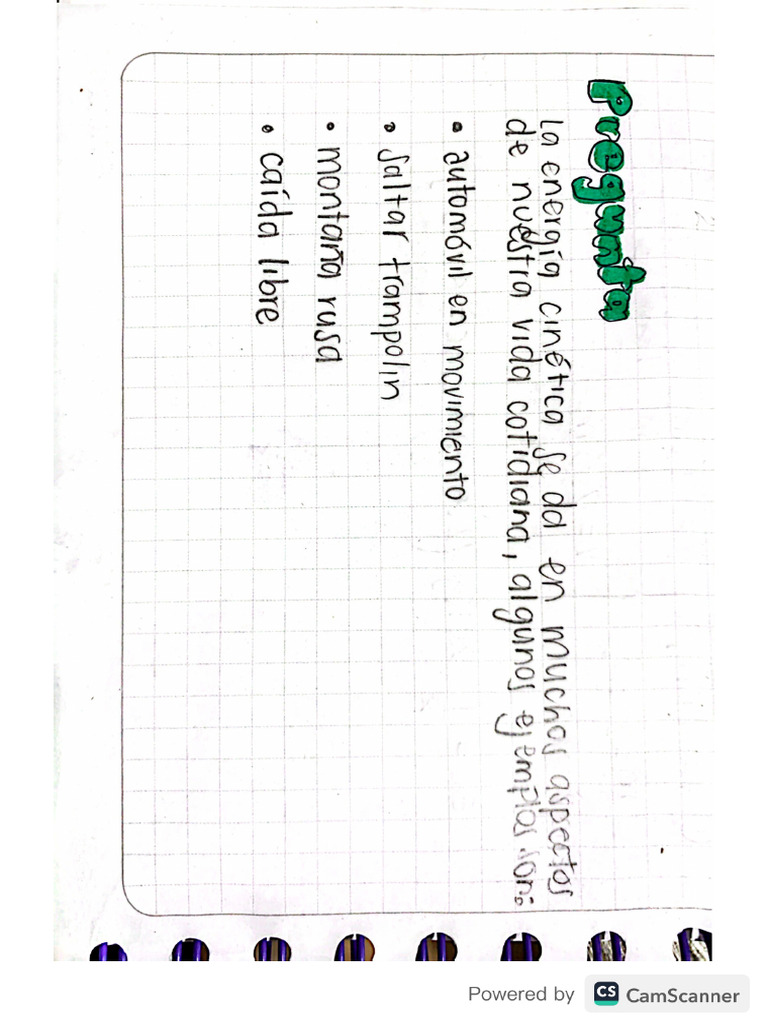 Pregunta
La energía cinética se da en muchos aspectos
de nuestra vida cotidiana, algunos ejemplos son:
• automóvil en movimiento
• saltar trampolin
• montaña rusa
• caída libre
Powered by CS CamScanner